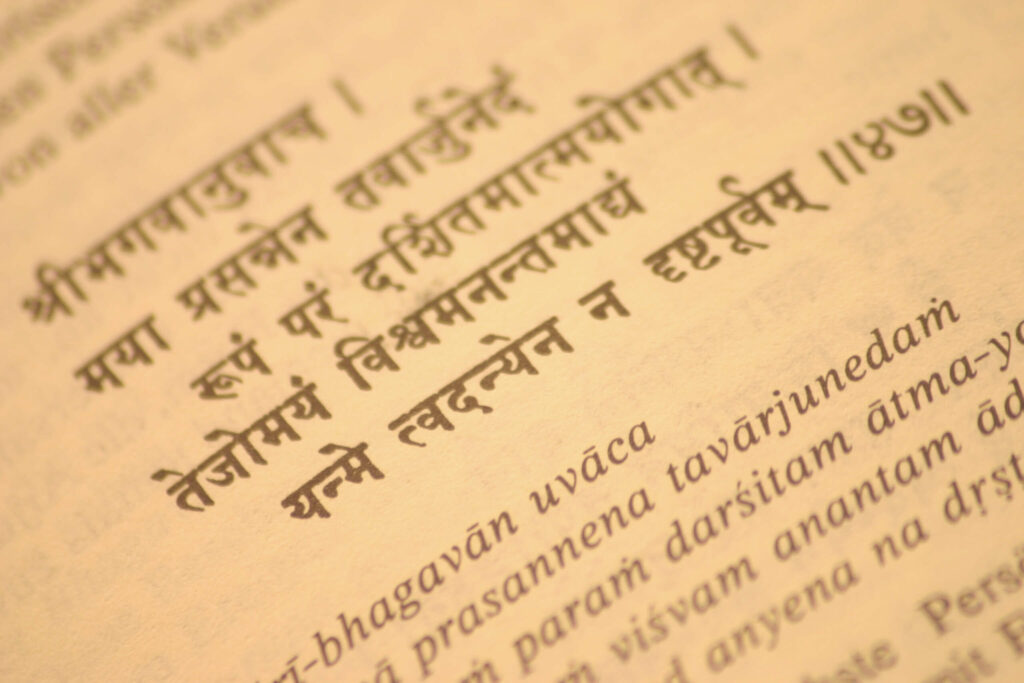 an Perso
von aller
श्रीभगवानुवाच ।
मया प्रसन्नेन तवार्जुनेदं
रूपं परं दर्शितमात्मयोगात् ।
तेजोमयं विश्वमनन्तमाद्यं
यन्मे त्वदन्येन न दृष्टपूर्वम् ॥४७॥
rī-bhagavān uvāca
ā prasannena tavārjunedaṁ
ṁ paraṁ darśitam ātma-yo
ṁ viśvam anantam ād
d anyena na dṛṣṭ
Persö
mit